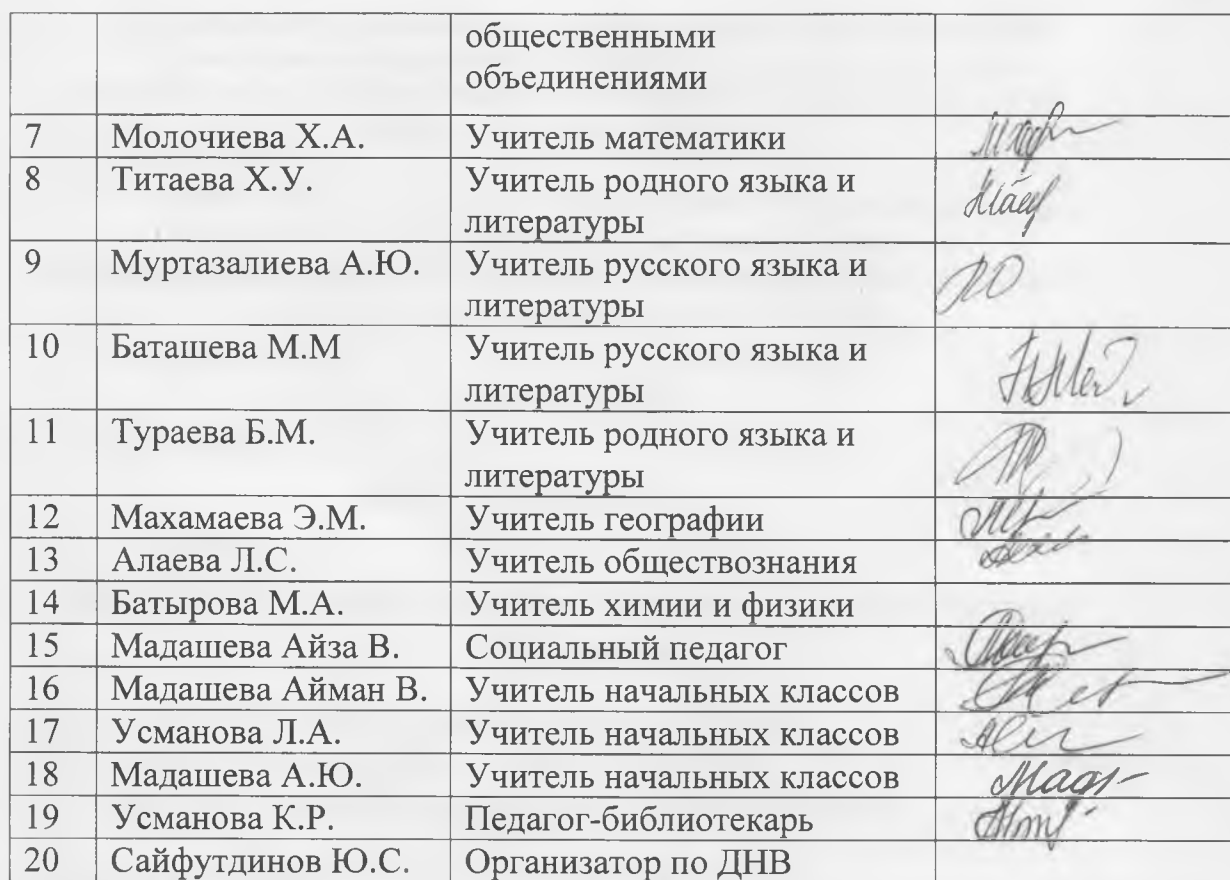 общественными
объединениями
7 Молочиева Х.А. Учитель математики
8 Титаева Х.У. Учитель родного языка и
литературы
9 Муртазалиева А.Ю. Учитель русского языка и
литературы
10 Баташева М.М Учитель русского языка и
литературы
11 Тураева Б.М. Учитель родного языка и
литературы
12 Махамаева Э.М. Учитель географии
13 Алаева Л.С. Учитель обществознания
14 Батырова М.А. Учитель химии и физики
15 Мадашева Айза В. Социальный педагог
16 Мадашева Айман В. Учитель начальных классов
17 Усманова Л.А. Учитель начальных классов
18 Мадашева А.Ю. Учитель начальных классов
19 Усманова К.Р. Педагог-библиотекарь
20 Сайфутдинов Ю.С. Организатор по ДНВ